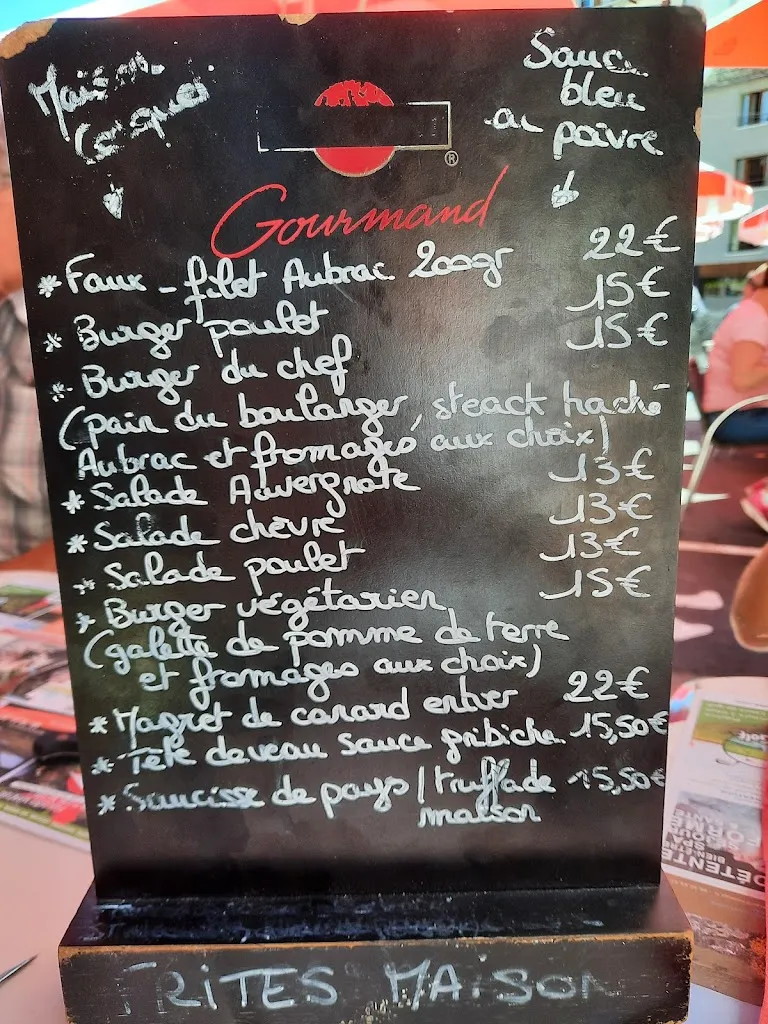 Maison
Sauce
bleu
au poivre
®
Gourmand
* Faux-filet Aubrac 200gr 22€
* Burger poulet 15€
* Burger du chef 15€
(pain du boulanger, steack haché
Aubrac et fromages aux choix)
* Salade Auvergnate 13€
* Salade chèvre 13€
* Salade poulet 13€
* Burger végétarien 15€
(galette de pomme de terre
et fromages aux choix)
* Magret de canard entier 22€
* Tête de veau sauce gribiche 15,50€
* Saucisse de pays / truffade 15,50€
maison
FRITES MAISON
DÉTENTE
BIEN-ÊTRE
FORME